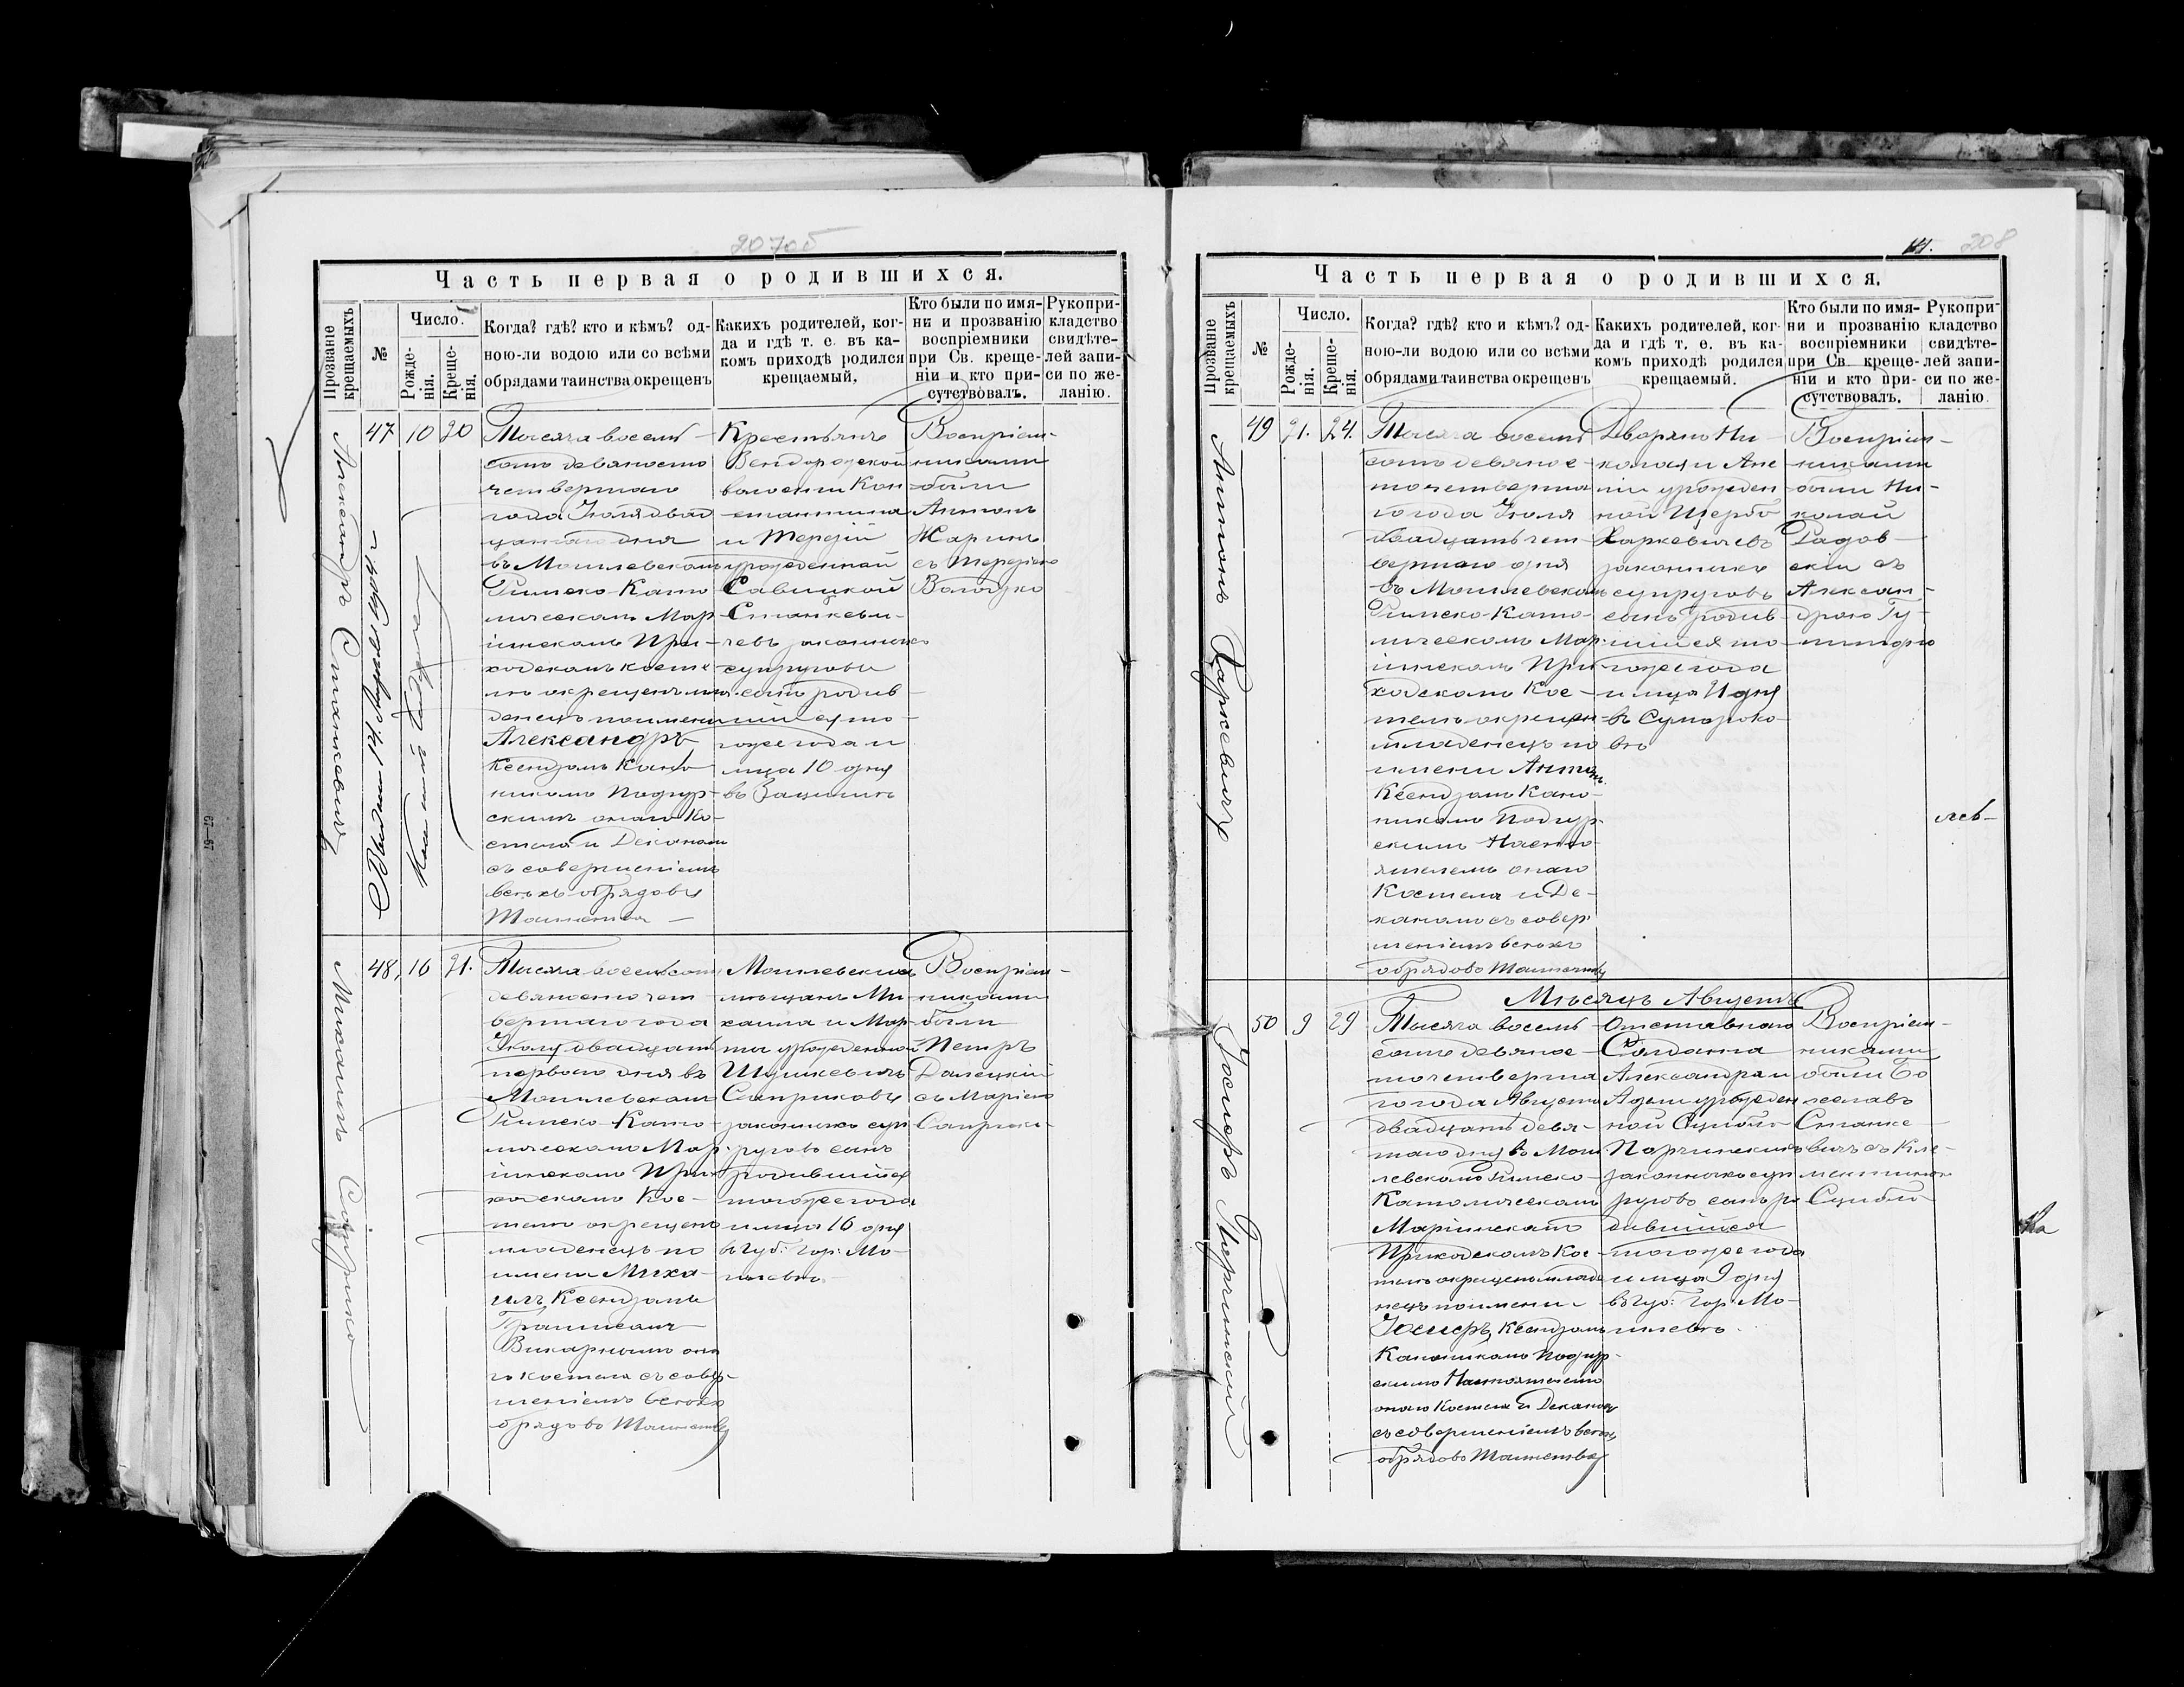 207об
Часть первая о родившихся.
Прозваніе крещаемыхъ
№
Число.
Рожде-
нія.
Креще-
нія.
Когда? гдѣ? кто и кѣмъ? од-
ною-ли водою или со всѣми
обрядами таинства окрещенъ
Какихъ родителей, ког-
да и гдѣ т. е. въ ка-
комъ приходѣ родился
крещаемый,
Кто были по имя-
ни и прозванію
воспріемники
при Св. креще-
ніи и кто при-
сутствовалъ.
Рукопри-
кладство
свидѣте-
лей запи-
си по же-
ланію.
Александръ Станкевичъ
47
10
20
Тысяча восемь-
сотъ девяносто
четвертаго
года Іюля двад
цатаго дня
въ Могилевскомъ
Римско-Като
лическомъ Мар
іинскомъ При-
ходскомъ косте
лѣ окрещенъ мла
денецъ по имени
Александръ
Ксендзомъ Кано
никомъ Подгур-
скимъ онаго Ко-
стела и Деканомъ
съ совершеніемъ
всѣхъ обрядовъ
Таинства
Крестьянъ
волости Кон
стантина
и Терезіи
урожденной
Савицкой
Станкеви-
чевъ законныхъ
супруговъ
сынъ родив
шійся то-
гоже года и
мца 10 дня
Воспріем-
никами
были
Антонъ
Жаринъ
съ Терезіею
Михаилъ Саприко
48.
16
21.
Тысяча восемьсотъ
девяносто чет-
вертаго года
Іюля двадцать
перваго дня въ
Могилевскомъ
Римско-Като-
лическомъ Мар
іинскомъ При-
ходскомъ Кос-
телѣ окрещенъ
младенецъ по
имени Миха-
илъ Ксендзомъ
Викарнымъ она
го костела съ совер-
шеніемъ всѣхъ
обрядовъ Таинства
Могилевскихъ
мѣщанъ Ми-
хаила и Мар-
ты урожденной
Шушкевичъ
Саприковъ
законныхъ суп
руговъ сынъ
родившійся
тогоже года
и мца 16 дня
въ губ: гор: Мо-
гилевѣ.
Воспріем-
никами
были
Петръ
Далецкій
съ Маріею
208
Часть первая о родившихся.
Прозваніе крещаемыхъ
№
Число.
Рожде-
нія.
Креще-
нія.
Когда? гдѣ? кто и кѣмъ? од-
ною-ли водою или со всѣми
обрядами таинства окрещенъ
Какихъ родителей, ког-
да и гдѣ т. е. въ ка-
комъ приходѣ родился
крещаемый.
Кто были по имя-
ни и прозванію
воспріемники
при Св. креще-
ніи и кто при-
сутствовалъ.
Рукопри-
кладство
свидѣте-
лей запи-
си по же-
ланію.
Антонъ Харкевичъ
49
21.
24.
Тысяча восемь
сотъ девянос-
то четверта
го года Іюля
двадцать чет-
вертаго дня
въ Могилевскомъ
Римско-Като-
лическомъ Мар
іинскомъ При
ходскомъ Кос-
телѣ окрещен
младенецъ по
имени Антонъ
Ксендзомъ Кано-
никомъ Подгур-
скимъ Насто-
ятелемъ онаго
Костела и Де-
каномъ съ совер
шеніемъ всѣхъ
обрядовъ Таинства
Дворянъ Ни-
колая и Ан
ны урожден
ной Щербо
Харкевичевъ
законныхъ
супруговъ
сынъ родив
шійся то-
гоже года
и мца 21 дня
въ Суморо-
Воспріем-
никами
были Ни-
колай
Садов-
скій съ
Алексан-
дрою
Мѣсяцъ Августъ
Іосифъ Порчинскій
50
9
29
Тысяча восемь-
сотъ девянос-
то четверта
го года Августа
двадцать девя-
таго дня въ Моги-
левскомъ Римско-
Католическомъ
Маріинскомъ
Приходскомъ Кос-
телѣ окрещенъ младе
нецъ по имени
Іосифъ, Ксендзомъ
Каноникомъ Подгур-
скимъ Настоятелемъ
онаго Костела и Деканомъ
съ совершеніемъ всѣхъ
обрядовъ Таинства
Отставного
Солдата
Александра и
урожден
ной
законныхъ суп
руговъ сынъ ро
дившійся
тогоже года
и мца 9 дня
въ губ: гор: Мо-
гилевѣ.
Воспріем-
никами
были Бо
леславъ
Станке
вичъ съ Кле-
ментиною